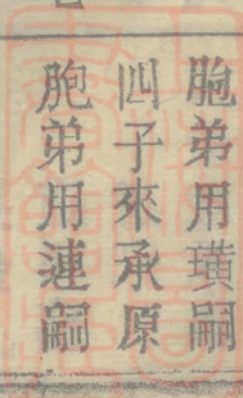 胞弟用璜嗣
四子來承原
胞弟用連嗣